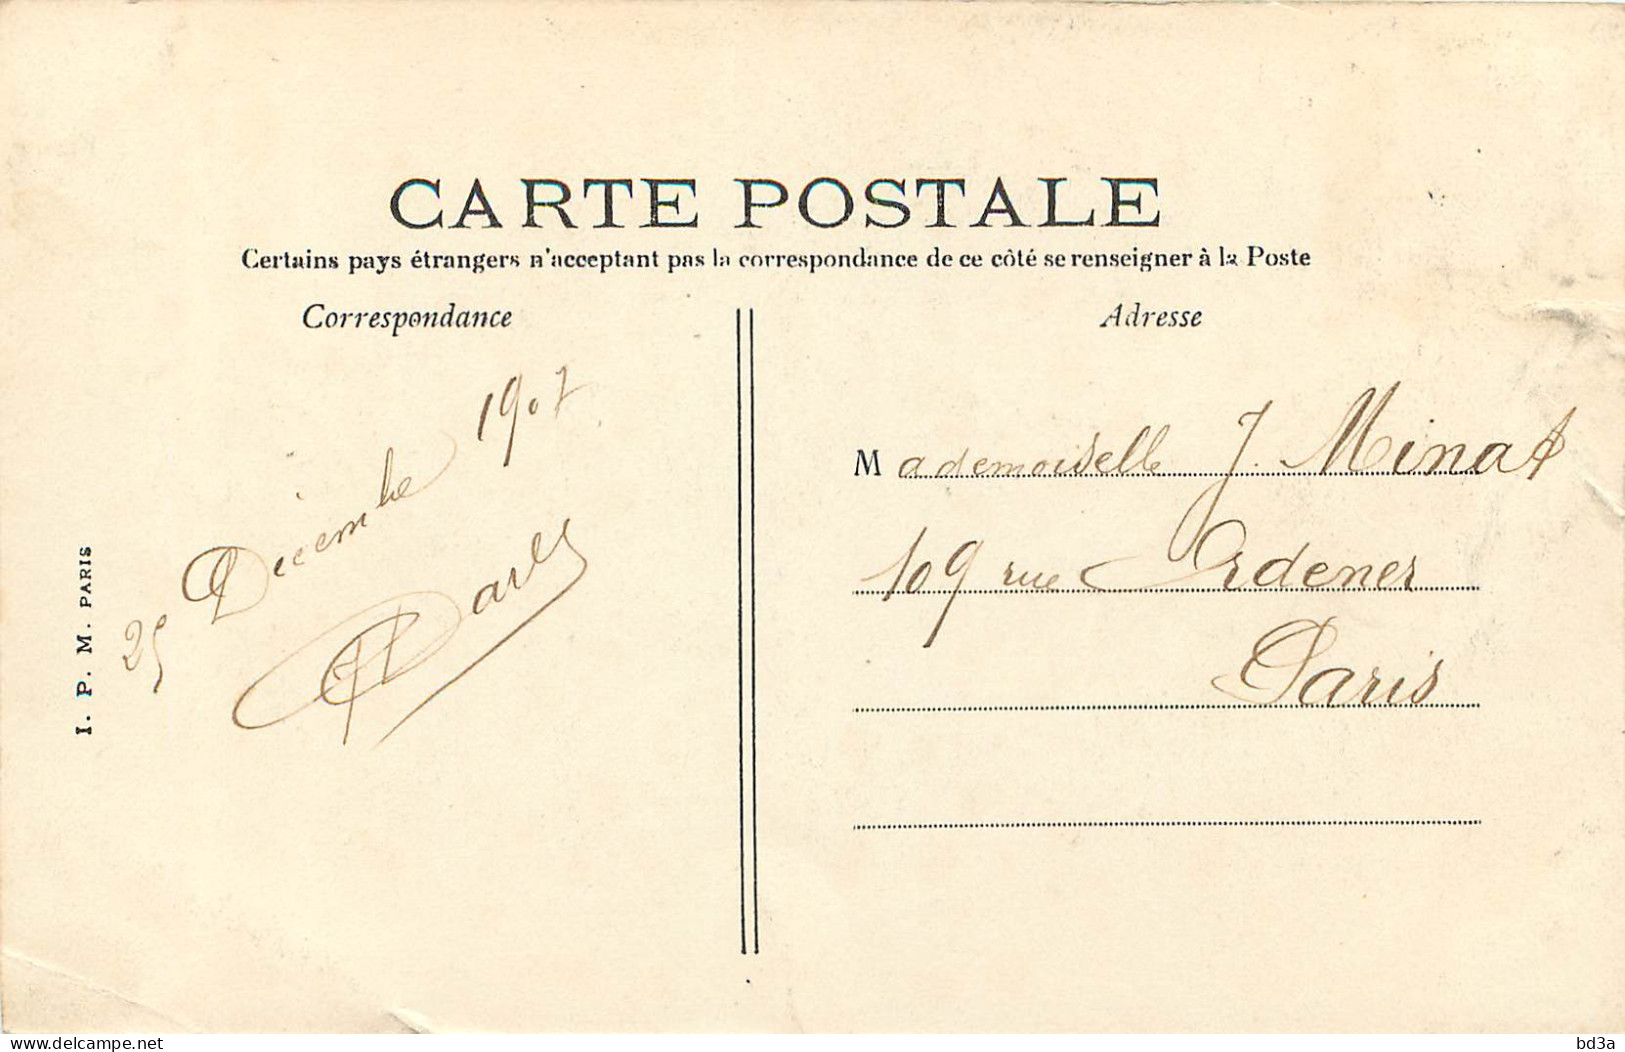 CARTE POSTALE
Certains pays étrangers n'acceptant pas la correspondance de ce côté se renseigner à la Poste
Correspondance
25 Décembre 1907
I. P. M. PARIS
Adresse
Mademoiselle J. Minat
109 rue Ordener
Paris
www.delcampe.net
bd3a